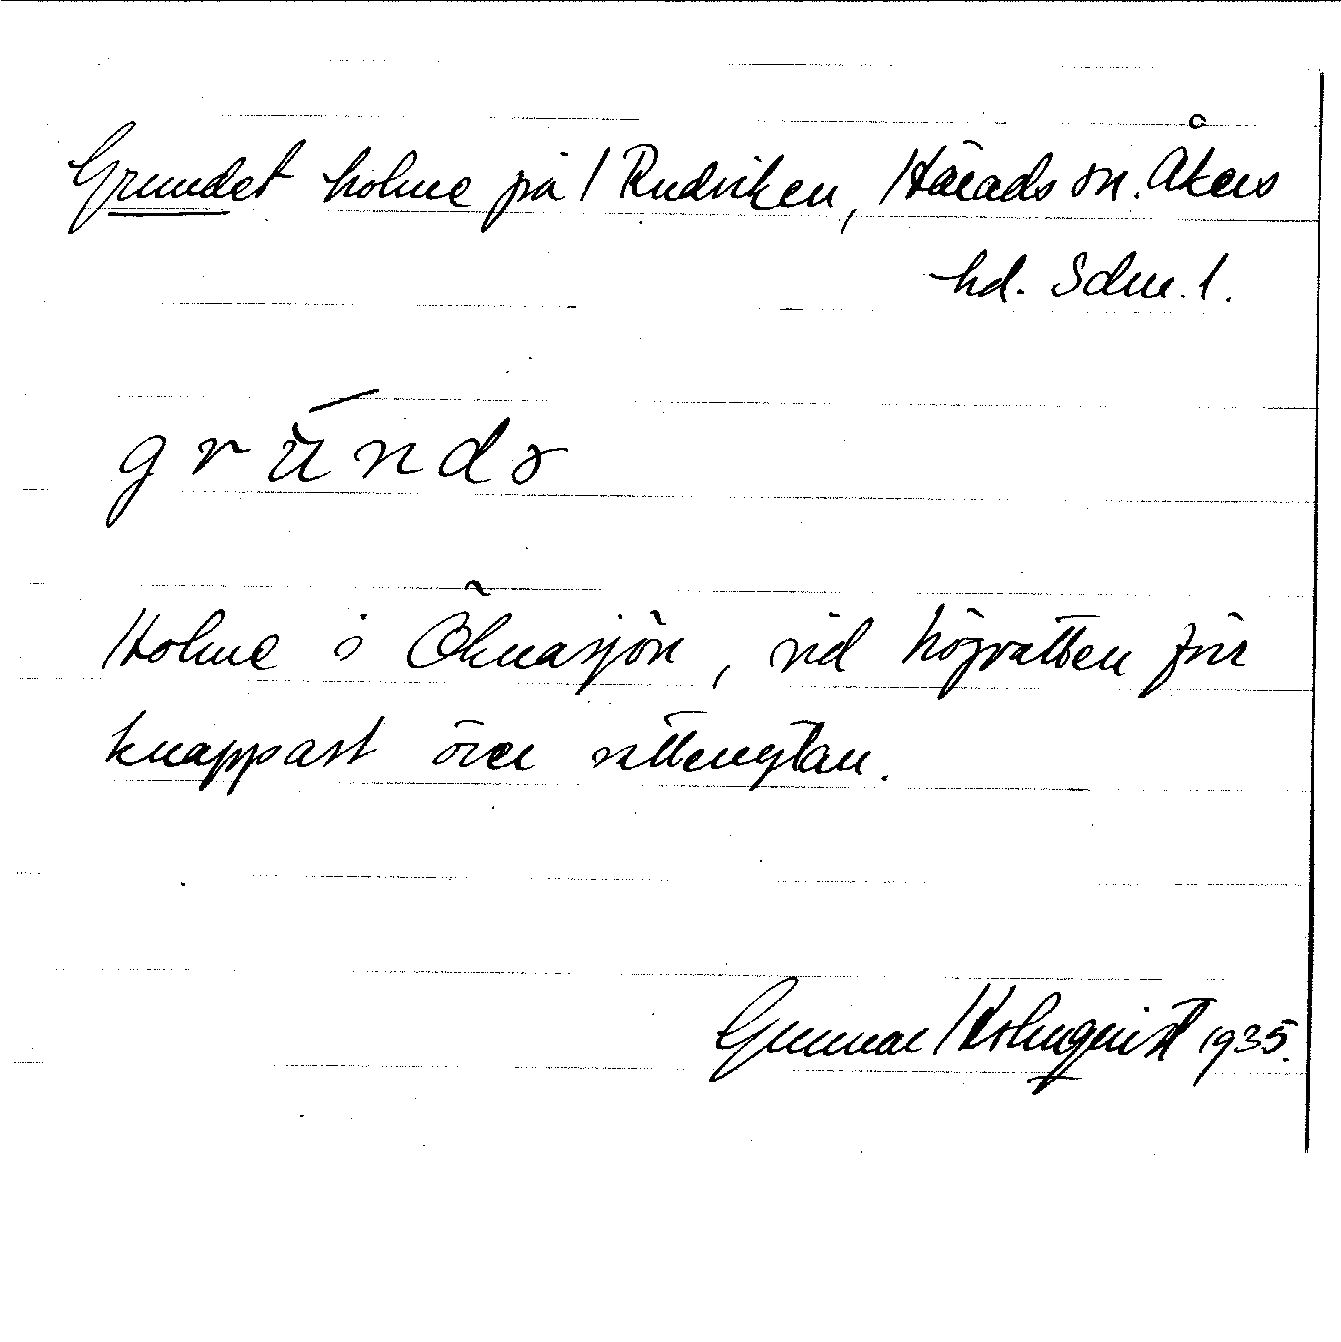 Grundet holme på Rudviken, Härads sn. Åkers
hd. Sdm. l.
grúndə
Holme i Öknasjön, vid högvatten
knappast över vattenytan.
Gunnar Holmquist 1935.